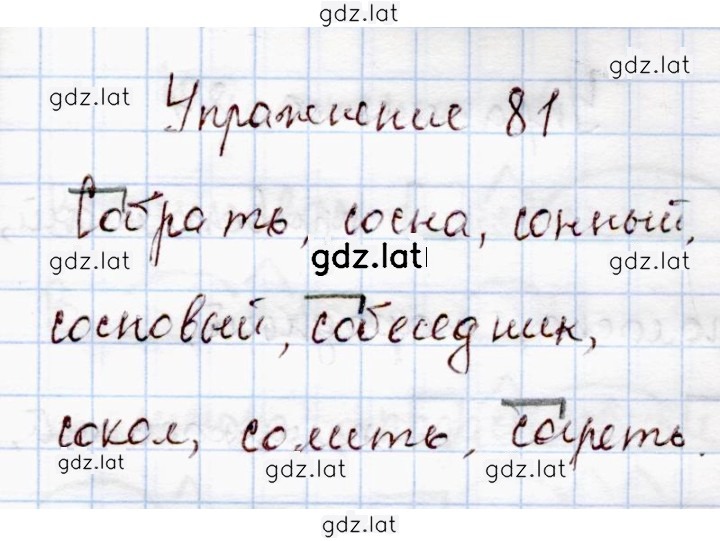 gdz.lat
gdz.lat
gdz.lat
Упражнение 81
Собрать, сосна, сонный,
gdz.lat gdz.lat gdz.lat
сосновый, собеседник,
сокол, солить, сореть.
gdz.lat gdz.lat gdz.lat
gdz.lat